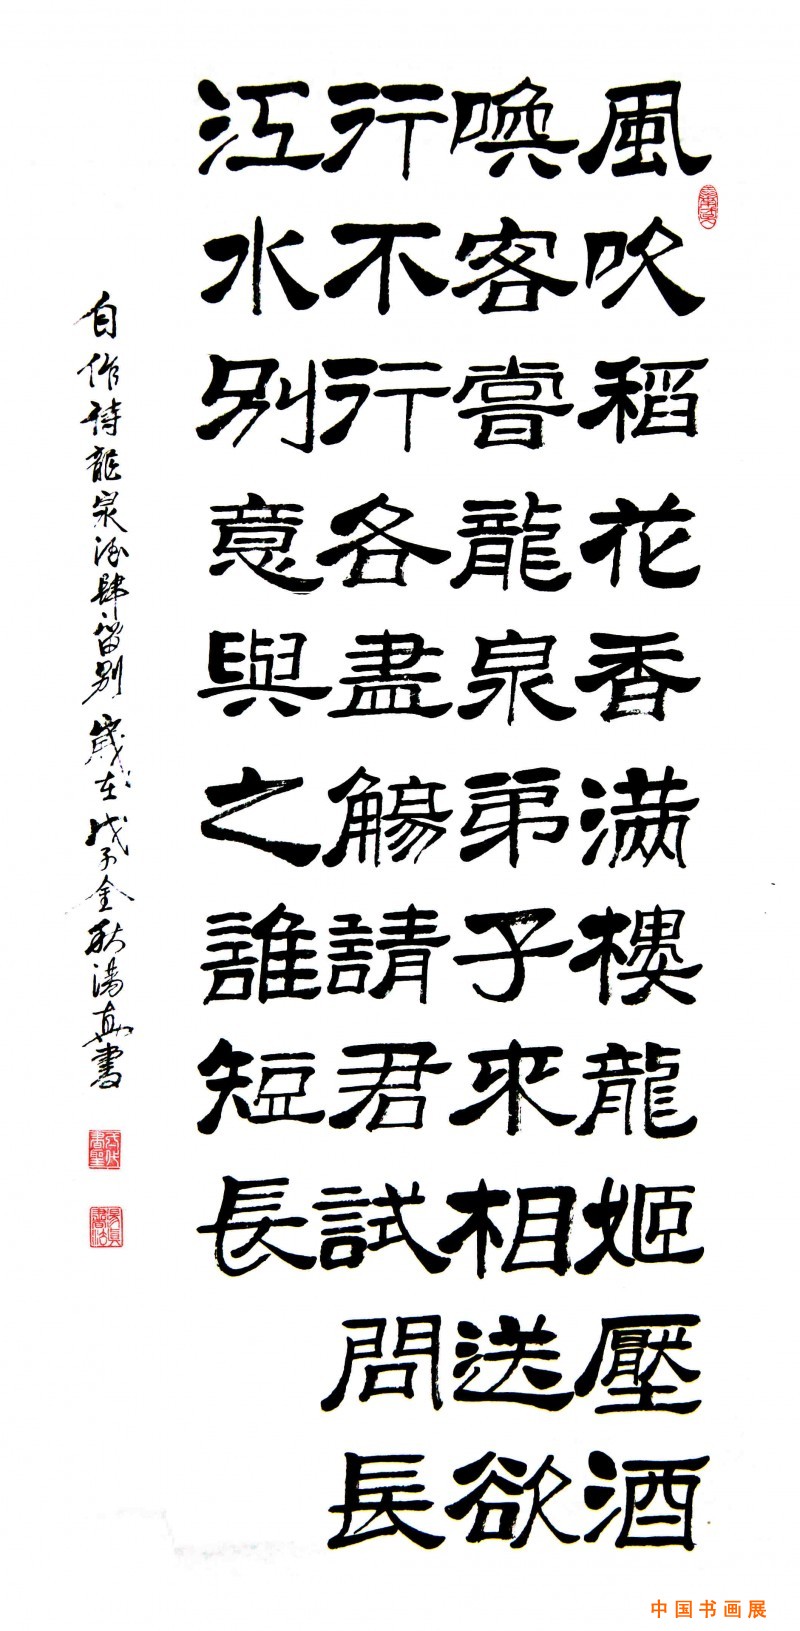 風吹稻花香滿樓龍姬壓酒
喚客嘗龍泉弟子來相送欲
行不行各盡觴請君試問長
江水別意與之誰短長
自作詩龍泉酒肆留別歲在戊子金秋湯真書
中国书画展